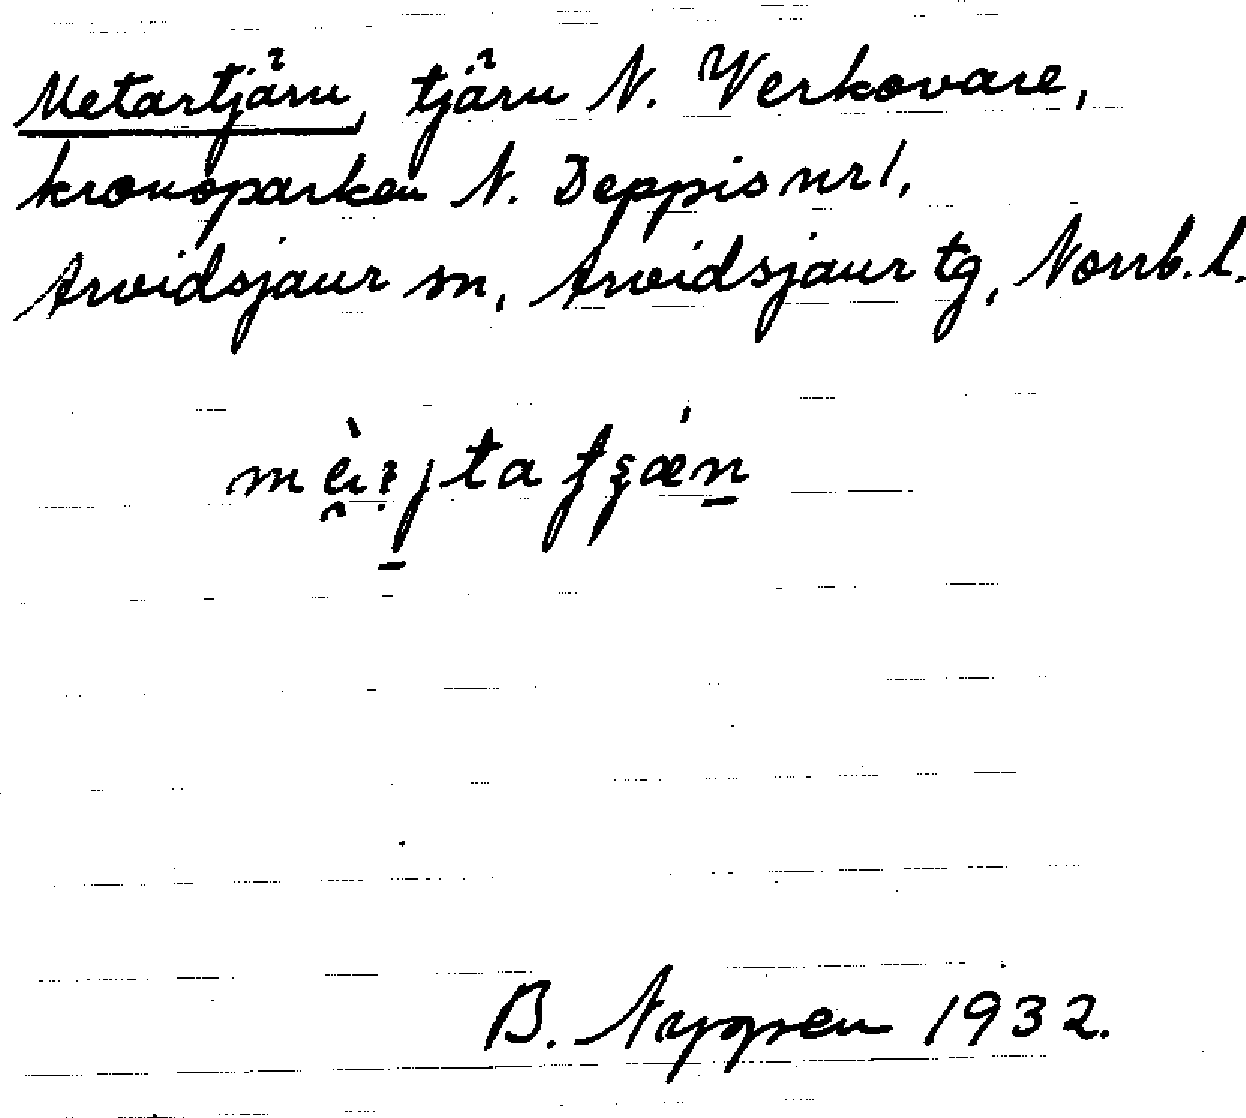 Metartjärn, tjärn N. Verkovare,
kronoparken N. Deppis nr 1,
Arvidsjaur sn, Arvidsjaur tg, Norrb. l.
B. Nyppen 1932.